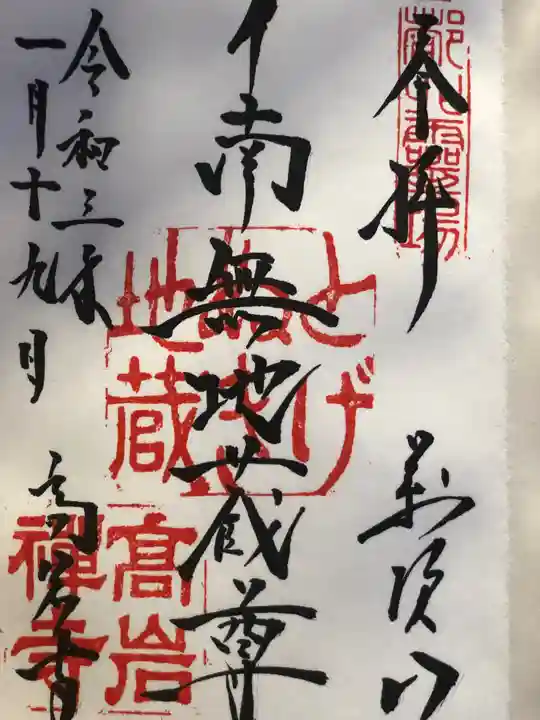 奉拝
南無地蔵尊
令和三年
一月十九日
高岩寺
とげ
ぬき
地蔵
高岩
禅寺